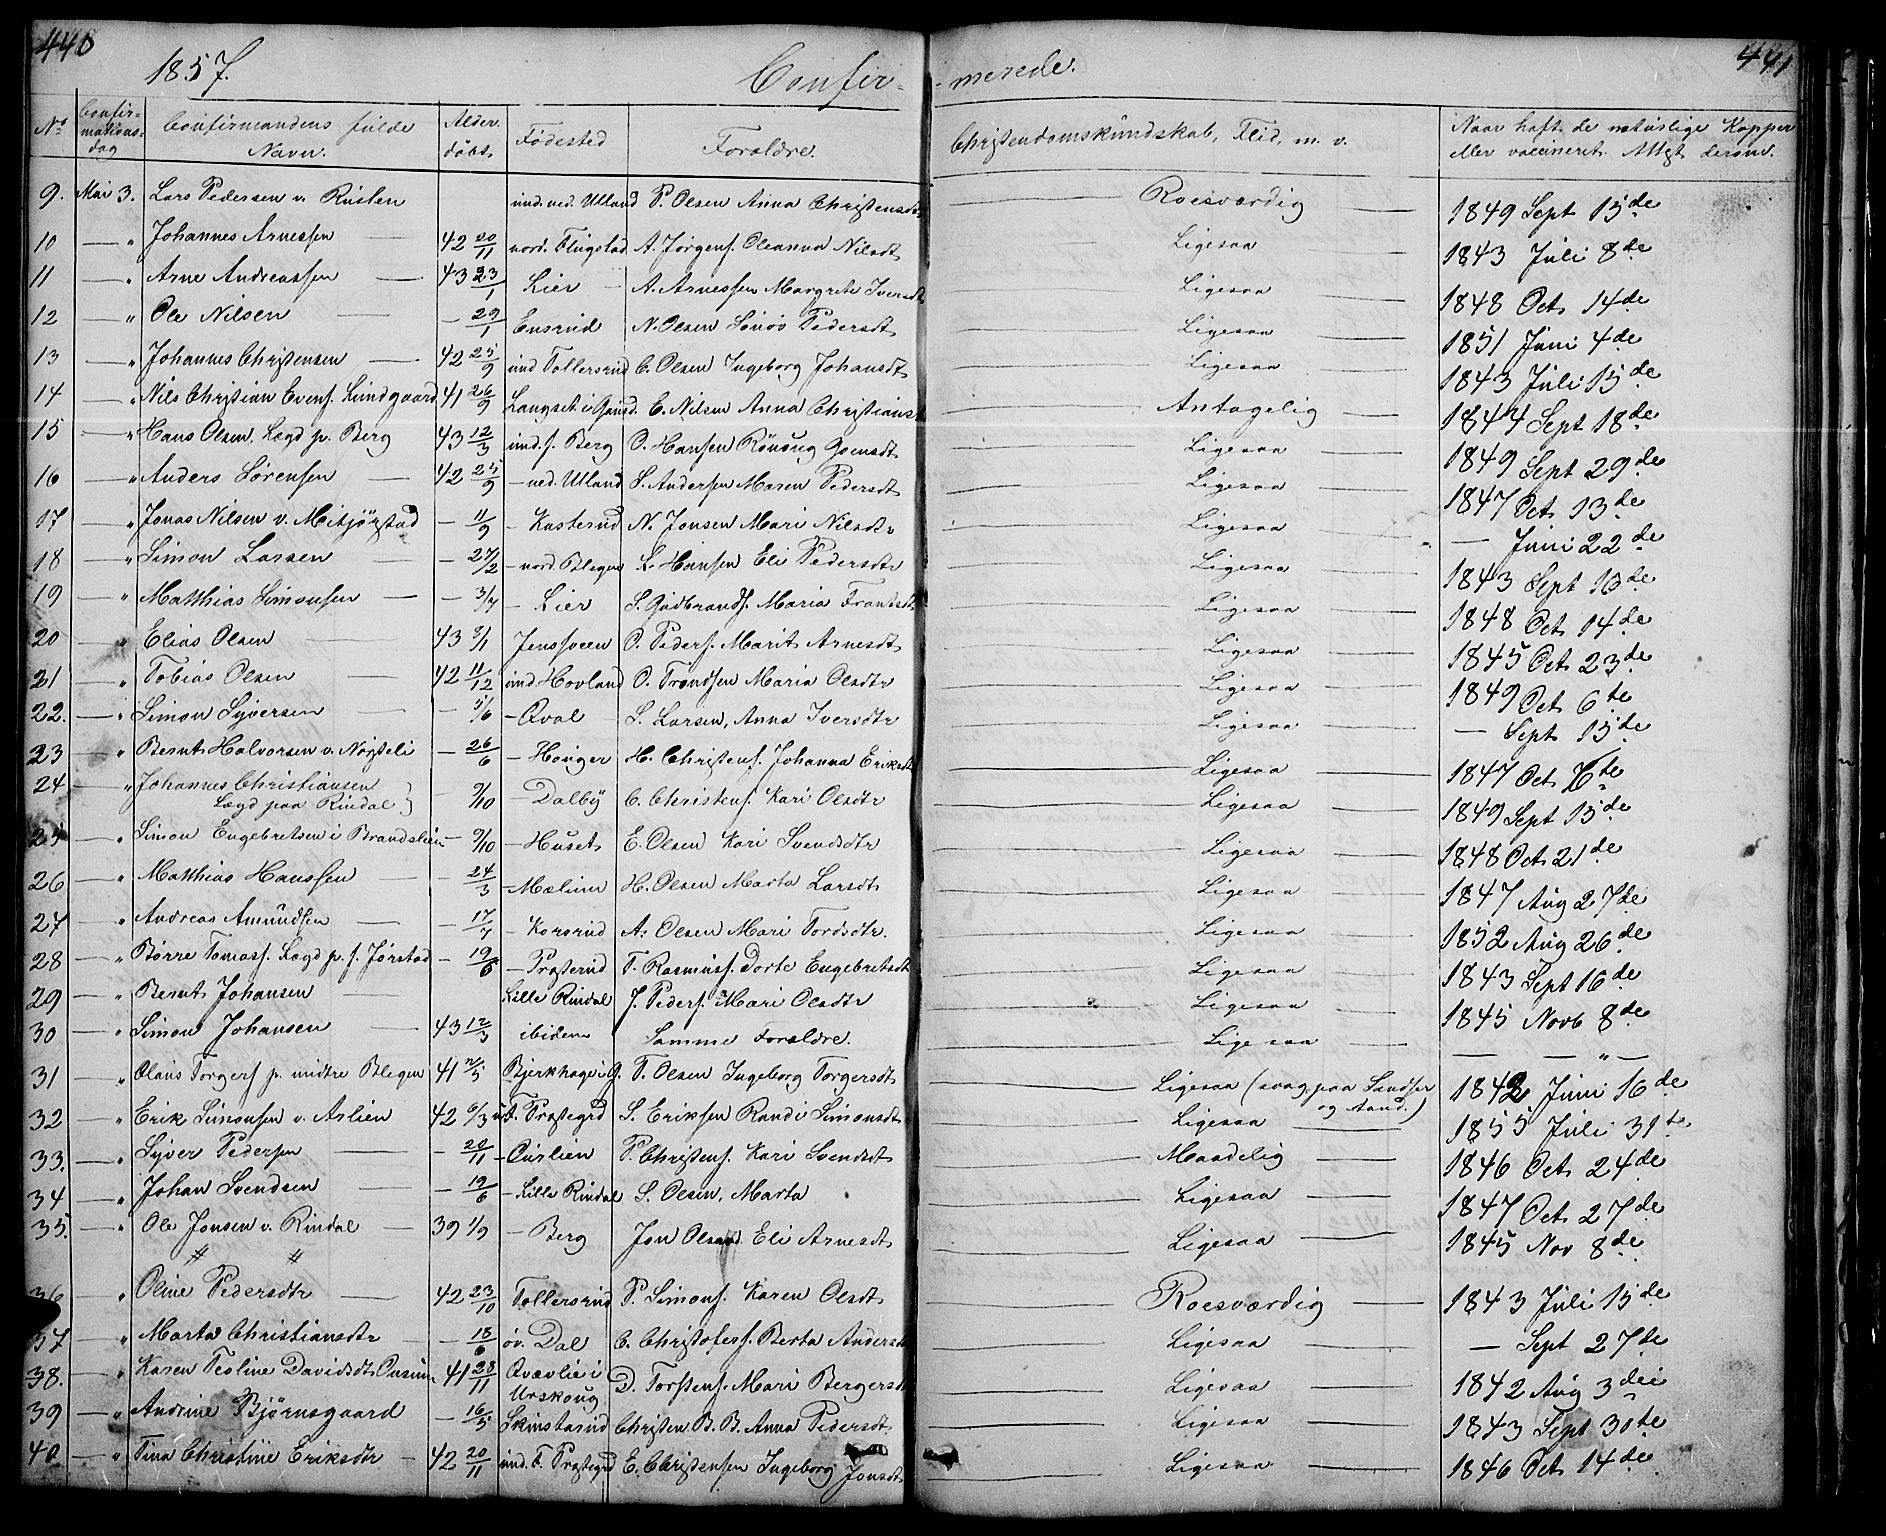 440
441
1857.
Confir-
merede.
No
Confir-
mations-
dag
Confirmandens fulde
Navn.
Alder.
døbt
Fødested
Forældre.
Christendomskundskab, Flid, m. v.
Naar haft de naturlige Kopper
eller vaccineret. Attest derom.
9. Mai 3. Lars Pedersen v. Rusten ind. ned. Ulland P. Olsen Anna Christensdt. Roesværdig 1849 Sept 15de
10 — " Johannes Arnessen — 42 20/11 nord. Flugstad A. Jørgens. Oleanna Nilsdt Ligesaa 1843 Juli 8de
11 — " Arne Andreassen — 43 23/1 Lier A. Arnessen Margrete Iversdt Ligesaa 1848 Oct. 14de
12 — " Ole Nilsen — - 29/1 Ensrud N. Olsen Sønøv Pedersdt Ligesaa 1851 Juni 4de
13 — " Johannes Christensen — 42 25/9 ind Tollersrud C. Olsen Ingeborg Johansdt Ligesaa 1843 Juli 15de
14 " Nils Christian Evens. Lundgaard 41 26/9 Langset i E. Nilsen Anna Christiansdt Antagelig 1844 Sept 18de
15 — " Hans Olsen, Lægd p. Berg 43 12/3 ind. s. Berg O. Hansen Rønaug Ligesaa 1849 Sept 29de
16 — " Anders Sørensen — 42 25/9 - ned. Ulland S. Andersen Maren Pedersdt Ligesaa 1847 Oct. 13de
17 — " Jonas Nilsen v. Mitjørstad - 11/9 - Kasterud N. Jonsen Mari Nilsdtr Ligesaa — Juni 22de
18 — " Simon Larsen — - 27/2 - nord. Blegen L. Hansen Eli Pedersdtr Ligesaa 1843 Sept 13de
19 — " Matthias Simonsen — - 3/7 - Lier S. Gudbrands. Maria Frantsdt Ligesaa 1848 Oct. 14de
20 — " Elias Olsen — 43 8/1 Jenssveen O. Peders. Marit Arnesdt Ligesaa 1845 Oct. 23de
21 — " Tobias Olsen — 42 11/12 ind Hovland O. Trondsen Maria Olsdtr Ligesaa 1849 Oct 6te
22. — " Simon Syversen — - 5/6 - Qval S. Larsen, Anna Iversdtr Ligesaa — Sept 15de
23 — " Bernt Halvorsen v. Nøysteli - 26/6 - Houger H. Christens. Johanna Eriksdt Ligesaa 1847 Oct. 6te
24 — " Johannes Christiansen
Lægd paa Rindal } - 9/10 - Dalby C. Christens. Kari Olsdtr Ligesaa 1849 Sept 15de
25 — " Simon Engebretsen i Brandslien - 9/10 - Huset E. Olsen Kari Svendsdtr Ligesaa 1848 Oct 21de
26 — " Matthias Hanssen — - 24/3 - Mælum H. Olsen Marta Larsdt Ligesaa 1847 Aug 27de
27 — " Andreas Amundsen — - 17/7 - Korsrud A. Olsen Mari Tordsdtr. Ligesaa 1852 Aug 26de
28 — " Børre Tomass. Lægd p. s. Jørstad - 19/6 - Prøsterud T. Rasmuss. Dorte Engebretsdt Ligesaa 1843 Sept 16de
29 — " Bernt Johansen — Lille Rindal J. Peders. Mari Olsdtr Ligesaa 1845 Novb 8de
30 — " Simon Johansen — 43 12/3 ibidem Samme Forældre. Ligesaa — — " —
31 — " Olaus Torgers p. midtre Blegen 41 Bjerkhage i G. T. Olsen Ingeborg Torgersdt Ligesaa (svag paa Sandser
og Aand.) 1842 Juni 16de
32 — " Erik Simonsen v. Aslien 42 6/3 F. Præstegrd S. Eriksen Randi Simonsdt Ligesaa 1855 Juli 31te
33. — " Syver Pedersen — - 20/11 - Qurlien P. Christens. Kari Svendsdt Maadelig 1846 Oct. 24de
34 — " Johan Svendsen — - 19/6 - Lille Rindal S. Olsen, Marta Ligesaa 1847 Oct. 27de
35. — " Ole Jonsen v. Rindal — 39 1/9 - Berg Jon Olsen Eli Arnesdt Ligesaa 1845 Nov 8de
# #
36 — " Oline Pedersdtr — 42 23/10 Tollersrud P. Simons. Karen Olsdt Roesværdig 1843 Juli 15de
37 — " Marta Christiansdtr — - 18/6 øv. Dal C. Christofers. Berta Andersdt Ligesaa — Sept 27de
38. — " Karen Teoline Davidsdt. 41 28/11 Qvævlie i
Urskoug D. Torstens. Mari Bergersdt Ligesaa 1842 Aug 3die
39 — " Andrine Bjørnsgaard - 16/5 Skinstarud Christen B. B. Anna Pedersdt Ligesaa 1843 Sept 30te
40 — " Tina Christine Eriksdtr — 42 20/11 ind. F. Præstegrd E. Christensen Ingeborg Jonsdt Ligesaa 1846 Oct 14de